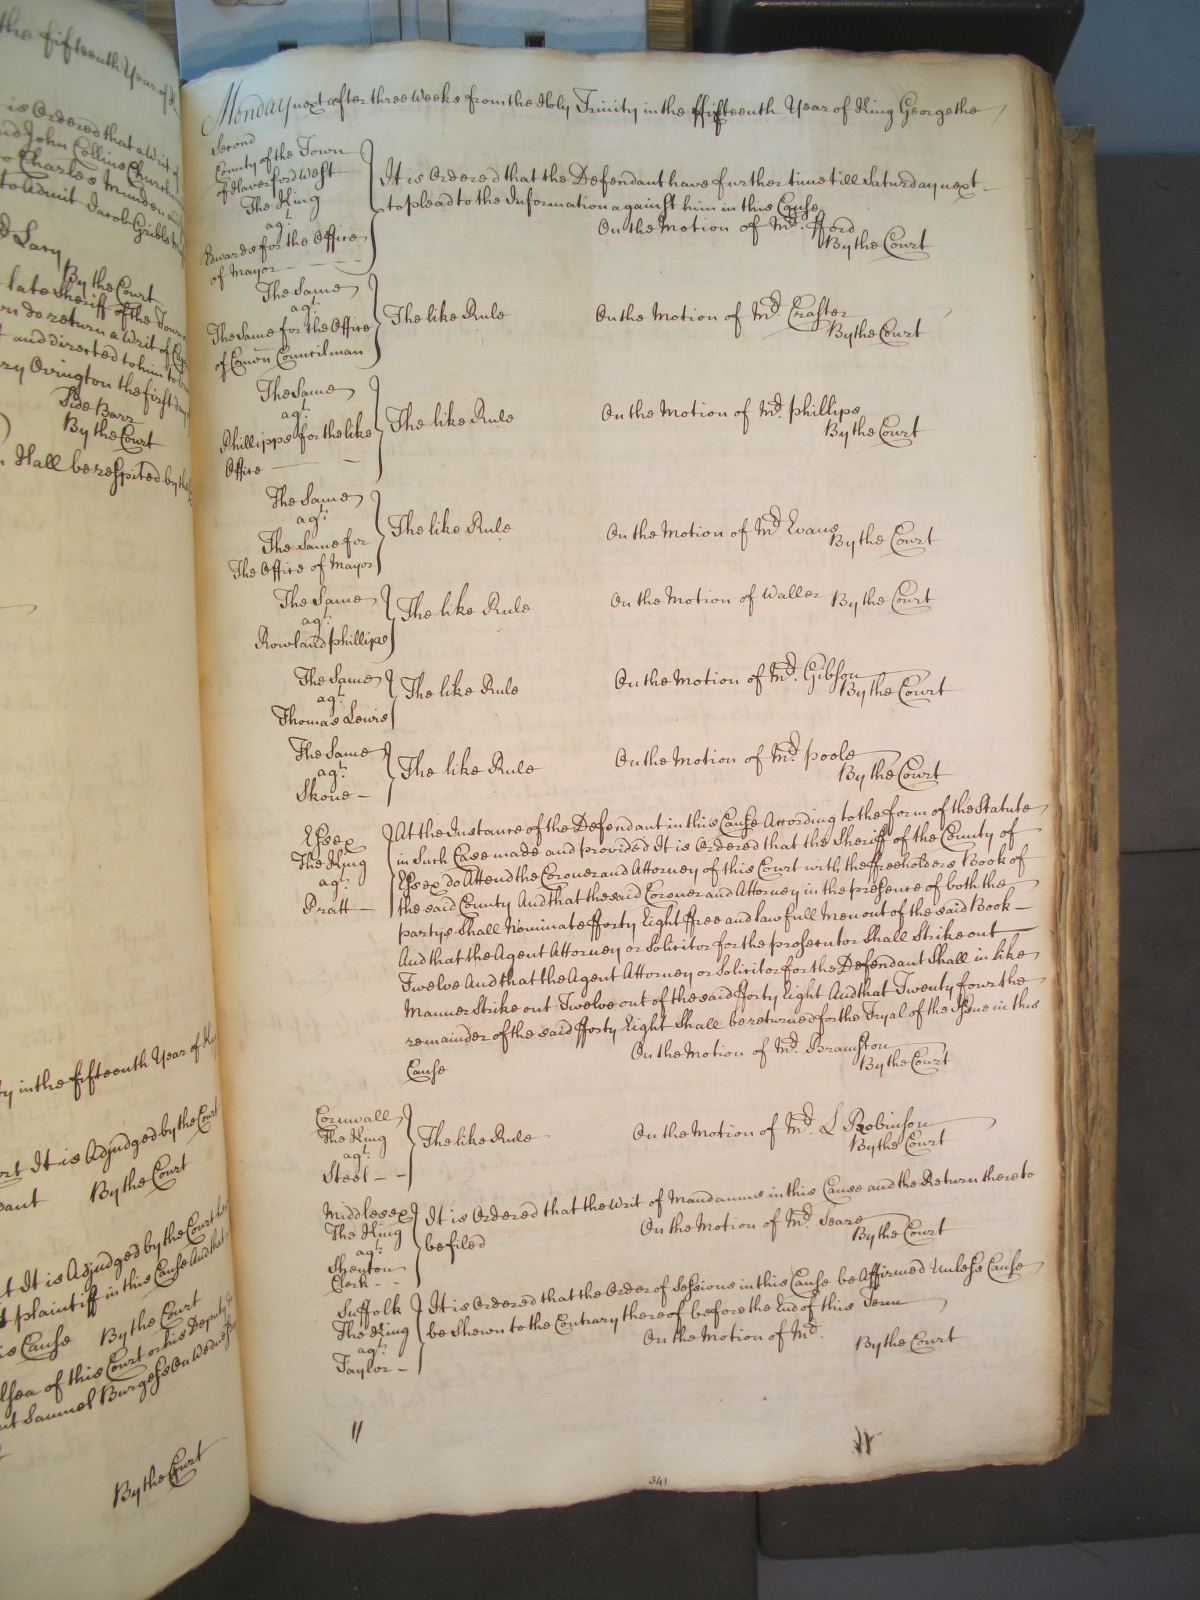 the fifteenth Year of
is Ordered that a Writ of
and John Collins Church
to Charles Munden and
to Admit Jacob Gribble
Lary
By the Court
late Sheriff of the Town
do return a Writ of
and directed to him to
Ovington the first day
Side Barr
By the Court
Hall be respited by the
in the fifteenth Year of
It is Adjudged by the Court
By the Court
It is Adjudged by the Court
plaintiff in this Cause And that
is Cause By the Court
of this Court or his Deputy
Samuel Burgess On Wednesday
By the Court
Monday next after three Weeks from the Holy Trinity in the ffifteenth Year of King George the
Second
County of the Town
of Haverfordwest
The King
agt.
Edwards for the Office
of Mayor
It is Ordered that the Defendant have further time till Saturday next
to plead to the Information against him in this Cause
On the Motion of Mr. fford
By the Court
The Same
agt.
The Same for the Office
of Comon Councilman
The like Rule
On the Motion of Mr. Craster
By the Court
The Same
agt.
Phillipps for the like
Office
The like Rule
On the Motion of Mr. phillips
By the Court
The Same
agt.
The Same for
The Office of Mayor
The like Rule
On the Motion of Mr. Evans
By the Court
The Same
agt.
Rowland phillips
The like Rule
On the Motion of Waller By the Court
The Same
agt.
Thomas Lewis
The like Rule
On the Motion of Mr. Gibson
By the Court
The Same
agt.
Skone
The like Rule
On the Motion of Mr. poole
By the Court
Essex
The King
agt.
Pratt
At the Instance of the Defendant in this Cause According to the form of the Statute
in Such Case made and provided It is Ordered that the Sheriff of the County of
Essex do Attend the Coroner and Attorney of this Court with the ffreeholders Book of
the said County And that the said Coroner and Attorney in the presence of both the
partys Shall Nominate fforty Eight ffree and lawfull Men out of the said Book
And that the Agent Attorney or Solicitor for the prosecutor Shall Strike out
Twelve And that the Agent Attorney or Solicitor for the Defendant Shall in like
Manner Strike out Twelve out of the said fforty Eight And that Twenty four the
remainder of the said fforty Eight Shall be returned for the Tryal of the Issue in this
Cause
On the Motion of Mr. Bramston
By the Court
Cornwall
The King
agt.
Steel
The like Rule
On the Motion of Mr. L Robinson
By the Court
Middlesex
The King
agt.
Shenton
Clerk
It is Ordered that the Writ of Mandamus in this Cause and the Return thereto
be filed
On the Motion of Mr. Seare
By the Court
Suffolk
The King
agt.
Taylor
It is Ordered that the Order of Sessions in this Cause be Affirmed Unless Cause
be Shewn to the Contrary thereof before the End of this Term
On the Motion of Mr.
By the Court
341